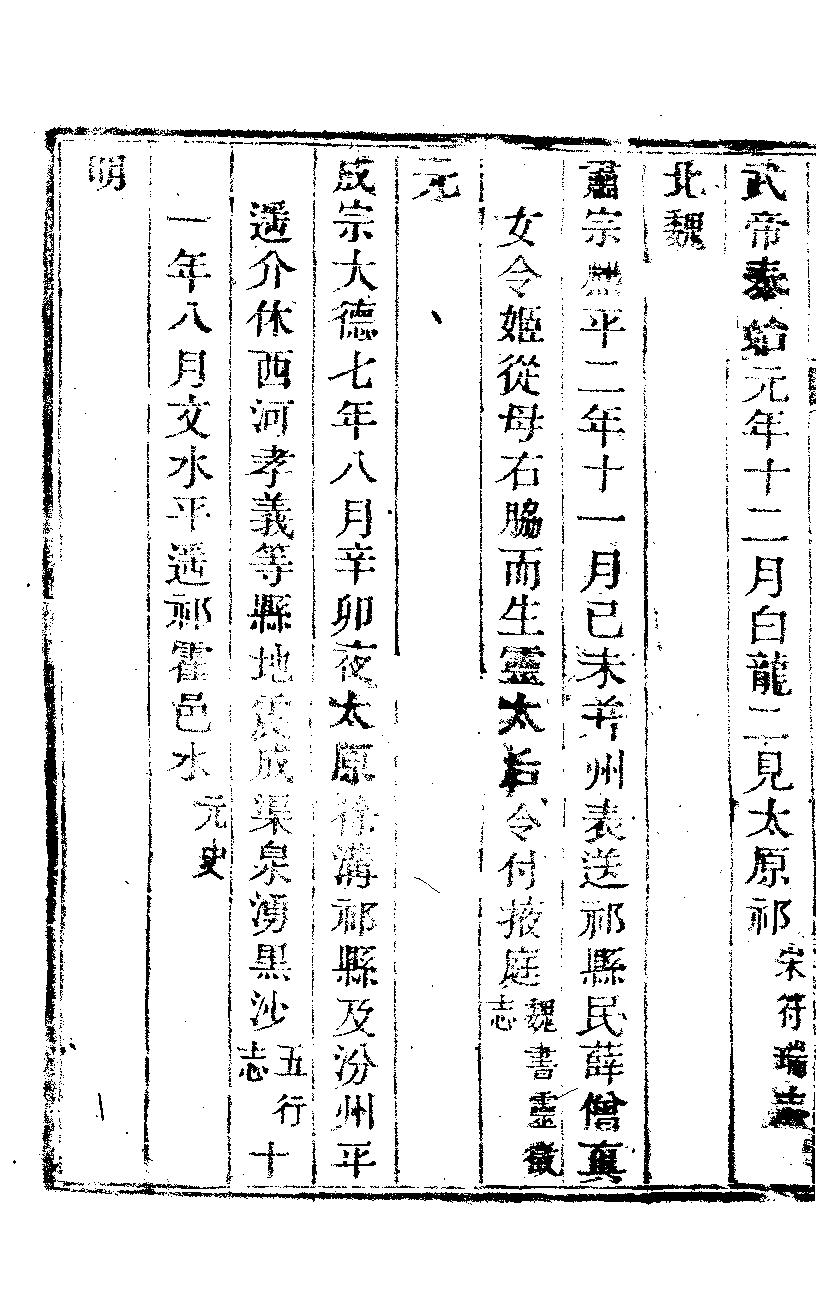 武帝泰始元年十二月白龍二見太原祁宋符瑞志
北魏
肅宗熈平二年十一月己未并州表送祁縣民薛僧真
女令姬從母右脇而生靈太后令付掖庭魏書靈徵志
元
成宗大德七年八月辛卯夜太原徐溝祁縣及汾州平
遥介休西河孝義等縣地震成渠泉湧黒沙五行志十
一年八月文水平遥祁霍邑水元史
明